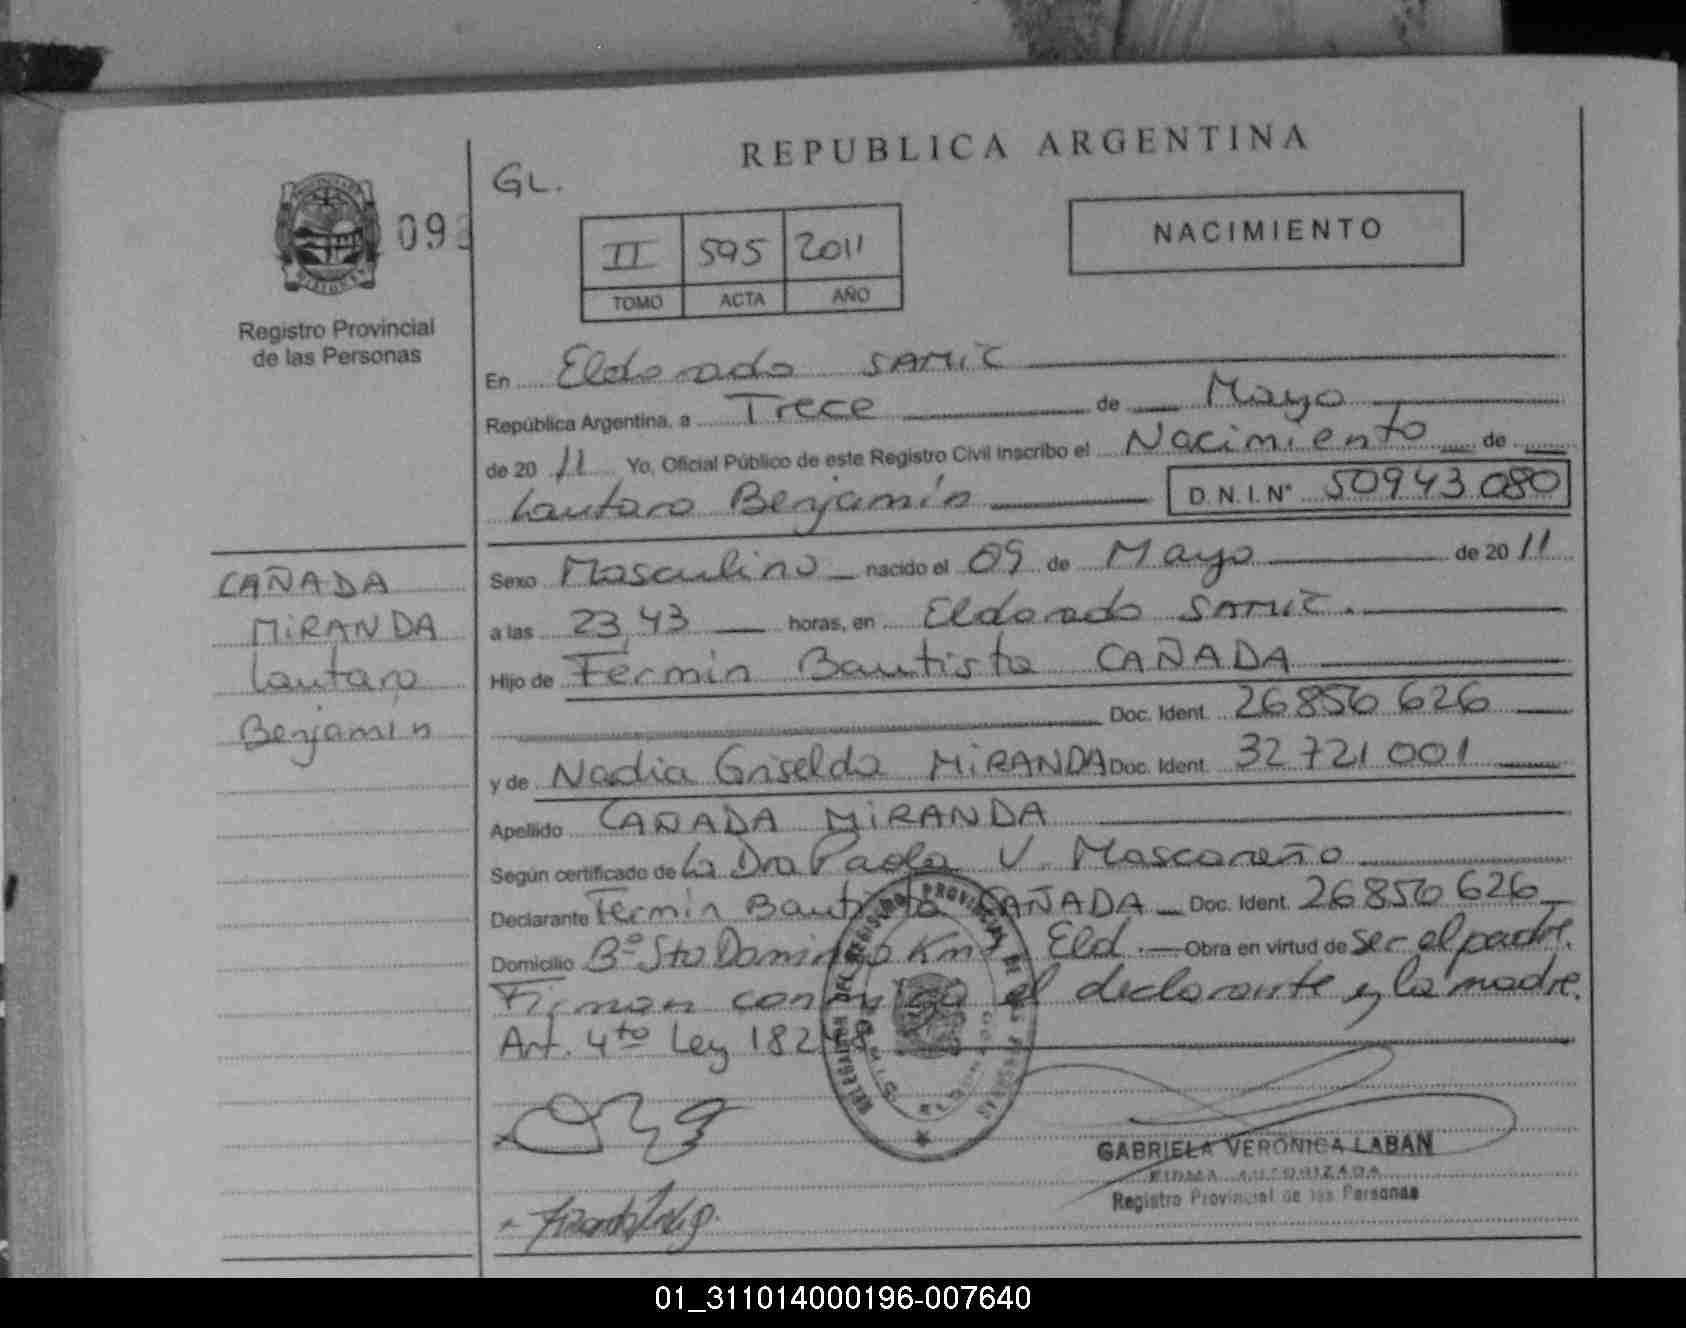 REPUBLICA ARGENTINA
GL.
09
NACIMIENTO
II 595 2011
TOMO ACTA AÑO
Registro Provincial
de las Personas
En Eldorado SAMIC
República Argentina, a Trece de Mayo
de 20 11 Yo, Oficial Público de este Registro Civil Inscribo el Nacimiento de
Lautaro Benjamín D.N.I.N° 50943080
CAÑADA
MiRANDA
Lautaro
Benjamín
Sexo Masculino nacido el 09 de Mayo de 20 11
a las 23,43 horas, en Eldorado SAMIC.
Hijo de Fermin Bautista CAÑADA
Doc. Ident. 26856626
y de Nadia Griselda MiRANDA Doc. Ident. 32721001
Apellido CAÑADA MiRANDA
Según certificado de La Dra Paola V. Mascareño
Declarante Fermin Bautista CAÑADA Doc. Ident. 26856626
Domicilio B° Sto Domingo Km Eld. Obra en virtud de ser el padre.
Firman conmigo el declarante y la madre.
Art. 4to Ley 18248
GABRIELA VERÓNICA LABAN
FIRMA AUTORIZADA
Registro Provincial de las Personas
01_311014000196-007640